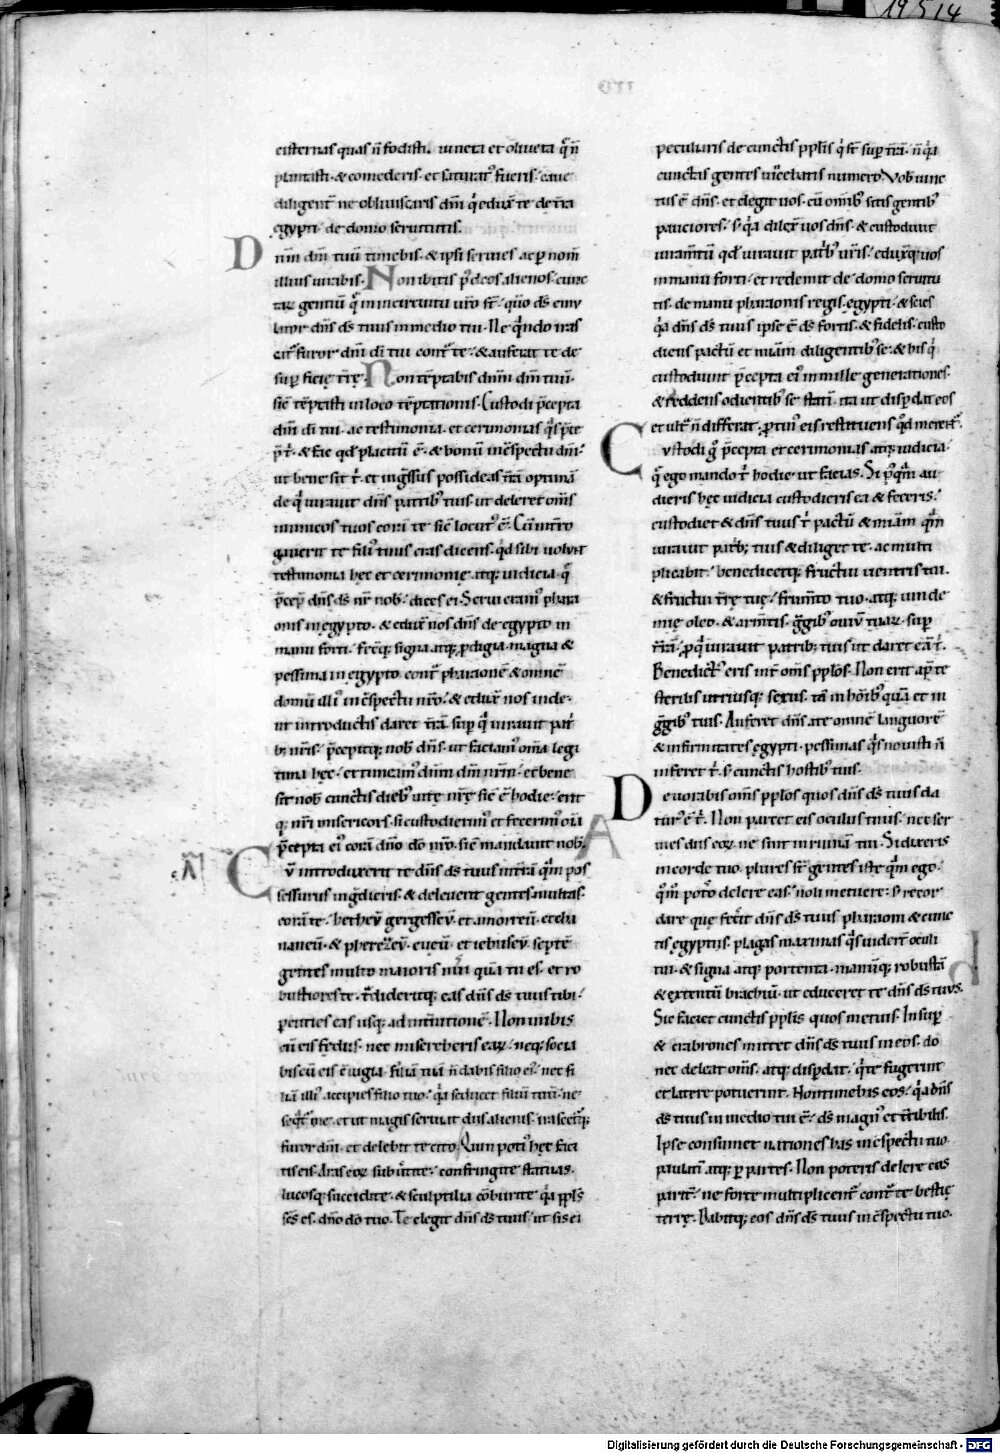 19514
cisternas quas n̄ fodisti. uineta et oliueta q̄ n̄
plantasti. & comederis. et saturat᷒ fueris. caue
diligent̄ ne obliuiscaris dn̄i q́ edux̄ te de t̄ra
egypti. de domo seruitutis.
Dn̄m dm̄ tuū timebis. & ipsi seruies ac p̱ nom̄
illius iurabis. Non ibitis p᷒ deos alienos. cunc
taꝝ gentiū q̄ in circuitu ur̄o st̄. qn̄o ds̄ emu
lator dn̄s ds̄ tuus in medio tui. Ne q̄ndo iras
cat᷒ furor dn̄i di tui cont̄ te. & auferat te de
sup̱ ficie t̄rę. Non tēptabis dn̄m dm̄ tuū.
sic̄ tēptasti in loco tēptationis. Custodi p̄cepta
dn̄i di tui. ac testimonia. et cerimonias q̄s p̄ce
p̄ t́. & fac qd̓ placitū ē. & bonū in c̄spectu dn̄i.
ut bene sit t́. et inḡssus possideas t̄rā optimā
de q̄ iurauit dn̄s patrib᷒ tuis. ut deleret om̄s
inimicos tuos corā te sic̄ locut᷒ ē. Cū int̄ro
gauerit te fili᷒ tuus cras dicens. qd̓ sibi uolunt
testimonia hęc et cerimonię. atq; iudicia q̄
p̄cep̄ dn̄s ds̄ nr̄ nob̓. dices ei. Serui eram᷒ phara
onis in egypto. & edux̄ nos dn̄s de egypto in
manu forti. fecitq; signa atq; ꝓdigia magna &
pessima in egypto. cont̄ pharaonē & omnē
domū illi᷒ in c̄spectu nr̄o. & edux̄ nos inde.
ut introductis daret t̄rā. sup̱ q̄ iurauit pat́
b; nr̄is. p̄cepitq; nob̓ dn̄s. ut faciam᷒ om̄a legi
tima hęc. et timeam᷒ dn̄m dm̄ nr̄m. et bene
sit nob̓ cunctis dieb᷒ uitę nr̄ę sic̄ ē hodie. erit
q; nr̄i misericors. si custodierim᷒ et fecerim᷒ om̄ia
p̄cepta ei᷒ corā dn̄o dō nr̄o. sic̄ mandauit nob̓.
Cū introduxerit te dn̄s ds̄ tuus in t̄rā q̄m pos
sessurus inḡdieris. & deleuerit gentes multas.
corā te. hetheū. gergesseū. et amorreū. et cha
naneū. & pherezeū. eueū. et iebuseū. septē
gentes multo maioris nūi quā tu es. et ro
bustiores te. t̄dideritq; eas dn̄s ds̄ tuus tibi.
p̱cuties eas usq; ad int̄nitionē. Non inibis
cū eis fędus. nec misereberis eaꝝ. neq; socia
bis cū eis c̄iugia. filiā tuā n̄ dabis filio ei᷒. nec fi
liā illi᷒ accipies filio tuo. q́a seducet filiū tuū. ne
seq̄t᷒ me. et ut magis seruiat diis alienis. irascet᷒q;
furor dn̄i. et delebit te cito. Quin poti᷒ hęc faci
tis eis. Aras eoꝝ subūtite. confringite statuas.
lucosq; succidite. & sculptilia cōburite. q́a ppl̄s
scs̄ es. dn̄o dō tuo. Te elegit dn̄s ds̄ tuus. ut sis ei
peculiaris de cunctis ppl̄is q́ st̄ sup̱ t̄rā. n̄ q́a
cunctas gentes uīcebatis numero. Vob̓ iunc
tus ē dn̄s. et elegit uos. cū omīb᷒ sitis gentib᷒
pauciores. s; q́a dilex̄ uos dn̄s. & custodiuit
iuram̄tū qd̓ iurauit pat́b᷒ ur̄is. eduxitq; uos
in manu forti. et redemit de domo seruitu
tis. de manu pharaonis regis. egypti. & scies
q́a dn̄s ds̄ tuus ipse ē ds̄ fortis. & fidelis. custo
diens pactū et miām diligentib᷒ se. & his q́
custodiunt p̄cepta ei᷒ in mille generationes.
& reddens odientib᷒ se statī. ita ut disp̱dat eos
et ult̄ n̄ differat. ꝓtin᷒ eis restituens qd̓ merent᷒.
Custodi ḡ p̄cepta et cerimonias atq; iudicia.
q̄ ego mando t́ hodie. ut facias. Si p᷒ q̄m au
dieris hęc iudicia custodieris ea & feceris.
custodiet & dn̄s tuus t́ pactū & miām q̄m
iurauit pat́b; tuis & diliget te. ac multi
plicabit. benedicetq; fructui uentris tui.
& fructui t̄rę tuę. frum̄to tuo. atq; uinde
mię oleo. & arm̄tis. ḡgib᷒ ouiū tuaꝝ. sup̱
t̄rā. ꝓ q̄ iurauit patrib; tuis ut daret eā t́.
Benedict᷒ eris int̄ om̄s ppl̄os. Non erit ap̱ te
sterilis utriusq; sexus. tā in hōib᷒ quā et in
ḡgib᷒ tuis. Auferet dn̄s a te omnē languorē
& infirmitates egypti. pessimas q̄s nouisti n̄
inferet t́. s; cunctis hostib᷒ tuis.
Deuorabis om̄s ppl̄os quos dn̄s ds̄ tuus da
tur᷒ ē t́. Non parcet eis oculus tuus. nec ser
uies diis eoꝝ. ne sint in ruinā tui. Si dixeris
in corde tuo. plures st̄ gentes istę q̄m ego.
q̄m̄ pot᷒o delere eas. noli metuere. s; recor
dare que fecit dn̄s ds̄ tuus pharaoni & cunc
tis egyptiis. plagas maximas q̄s uidert̄ oculi
tui. & signa atq; portenta. manūq; robustā
& extentū brachiū. ut educeret te dn̄s ds̄ tuus.
Sic faciet cunctis ppl̄is quos metuis. Insup̱
& crabrones mittet dn̄s ds̄ tuus in eos. do
nec deleat om̄s. atq; disp̱dat. q́ te fugerint
et latere potuerint. Non timebis eos. q́a dn̄s
ds̄ tuus in medio tui ē. ds̄ magn᷒ et t̄ribilis.
Ipse consumet nationes has in c̄spectu tuo.
paulatī atq; p̱ partes. Non poteris delere eas
parit̄. ne forte multiplicent᷒ cont̄ te bestię
terrę. Dabitq; eos dn̄s ds̄ tuus in c̄spectu tuo.
Digitalisierung gefördert durch die Deutsche Forschungsgemeinschaft - DFG